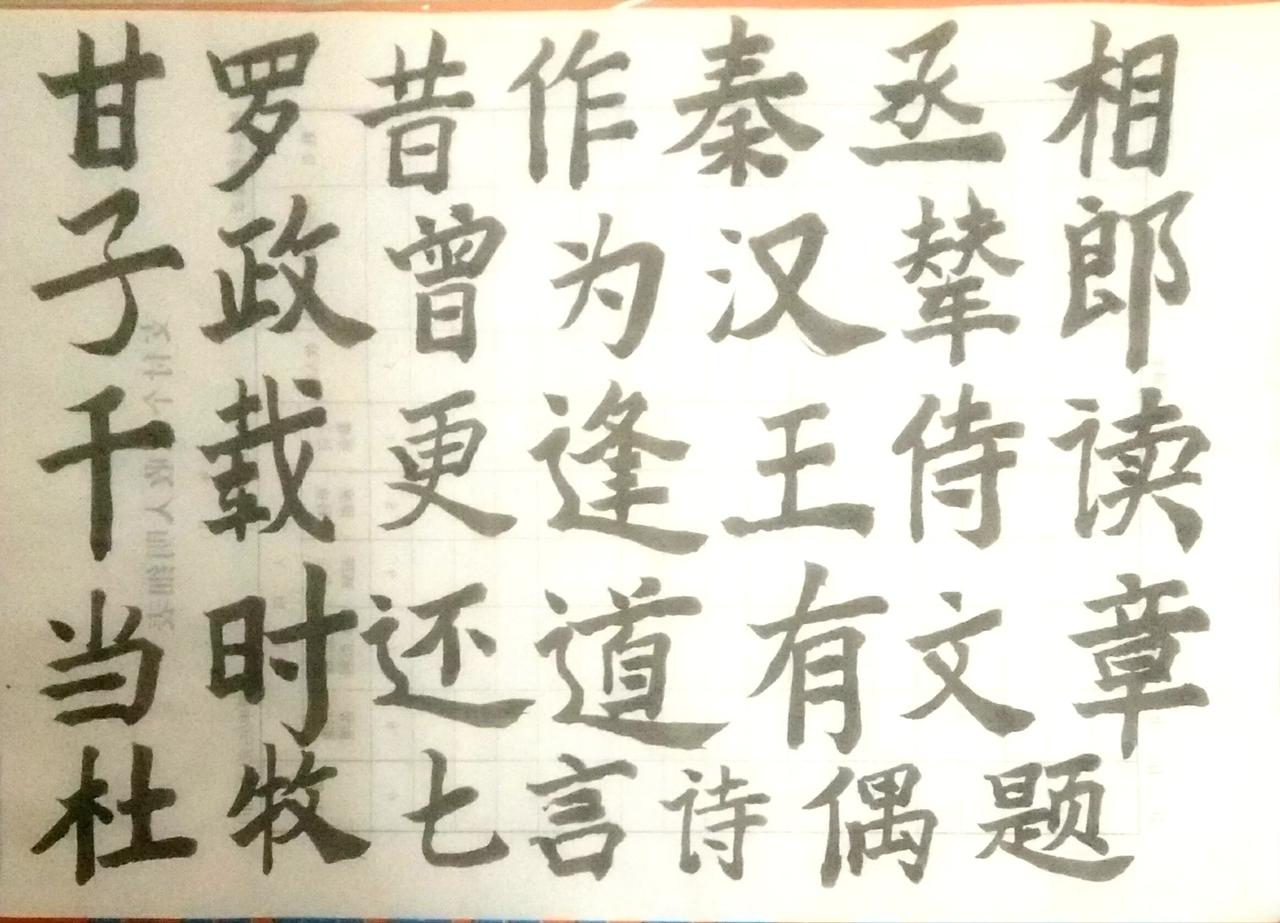 甘罗昔作秦丞相
子政曾为汉辇郎
千载更逢王侍读
当时还道有文章
杜牧七言诗偶题